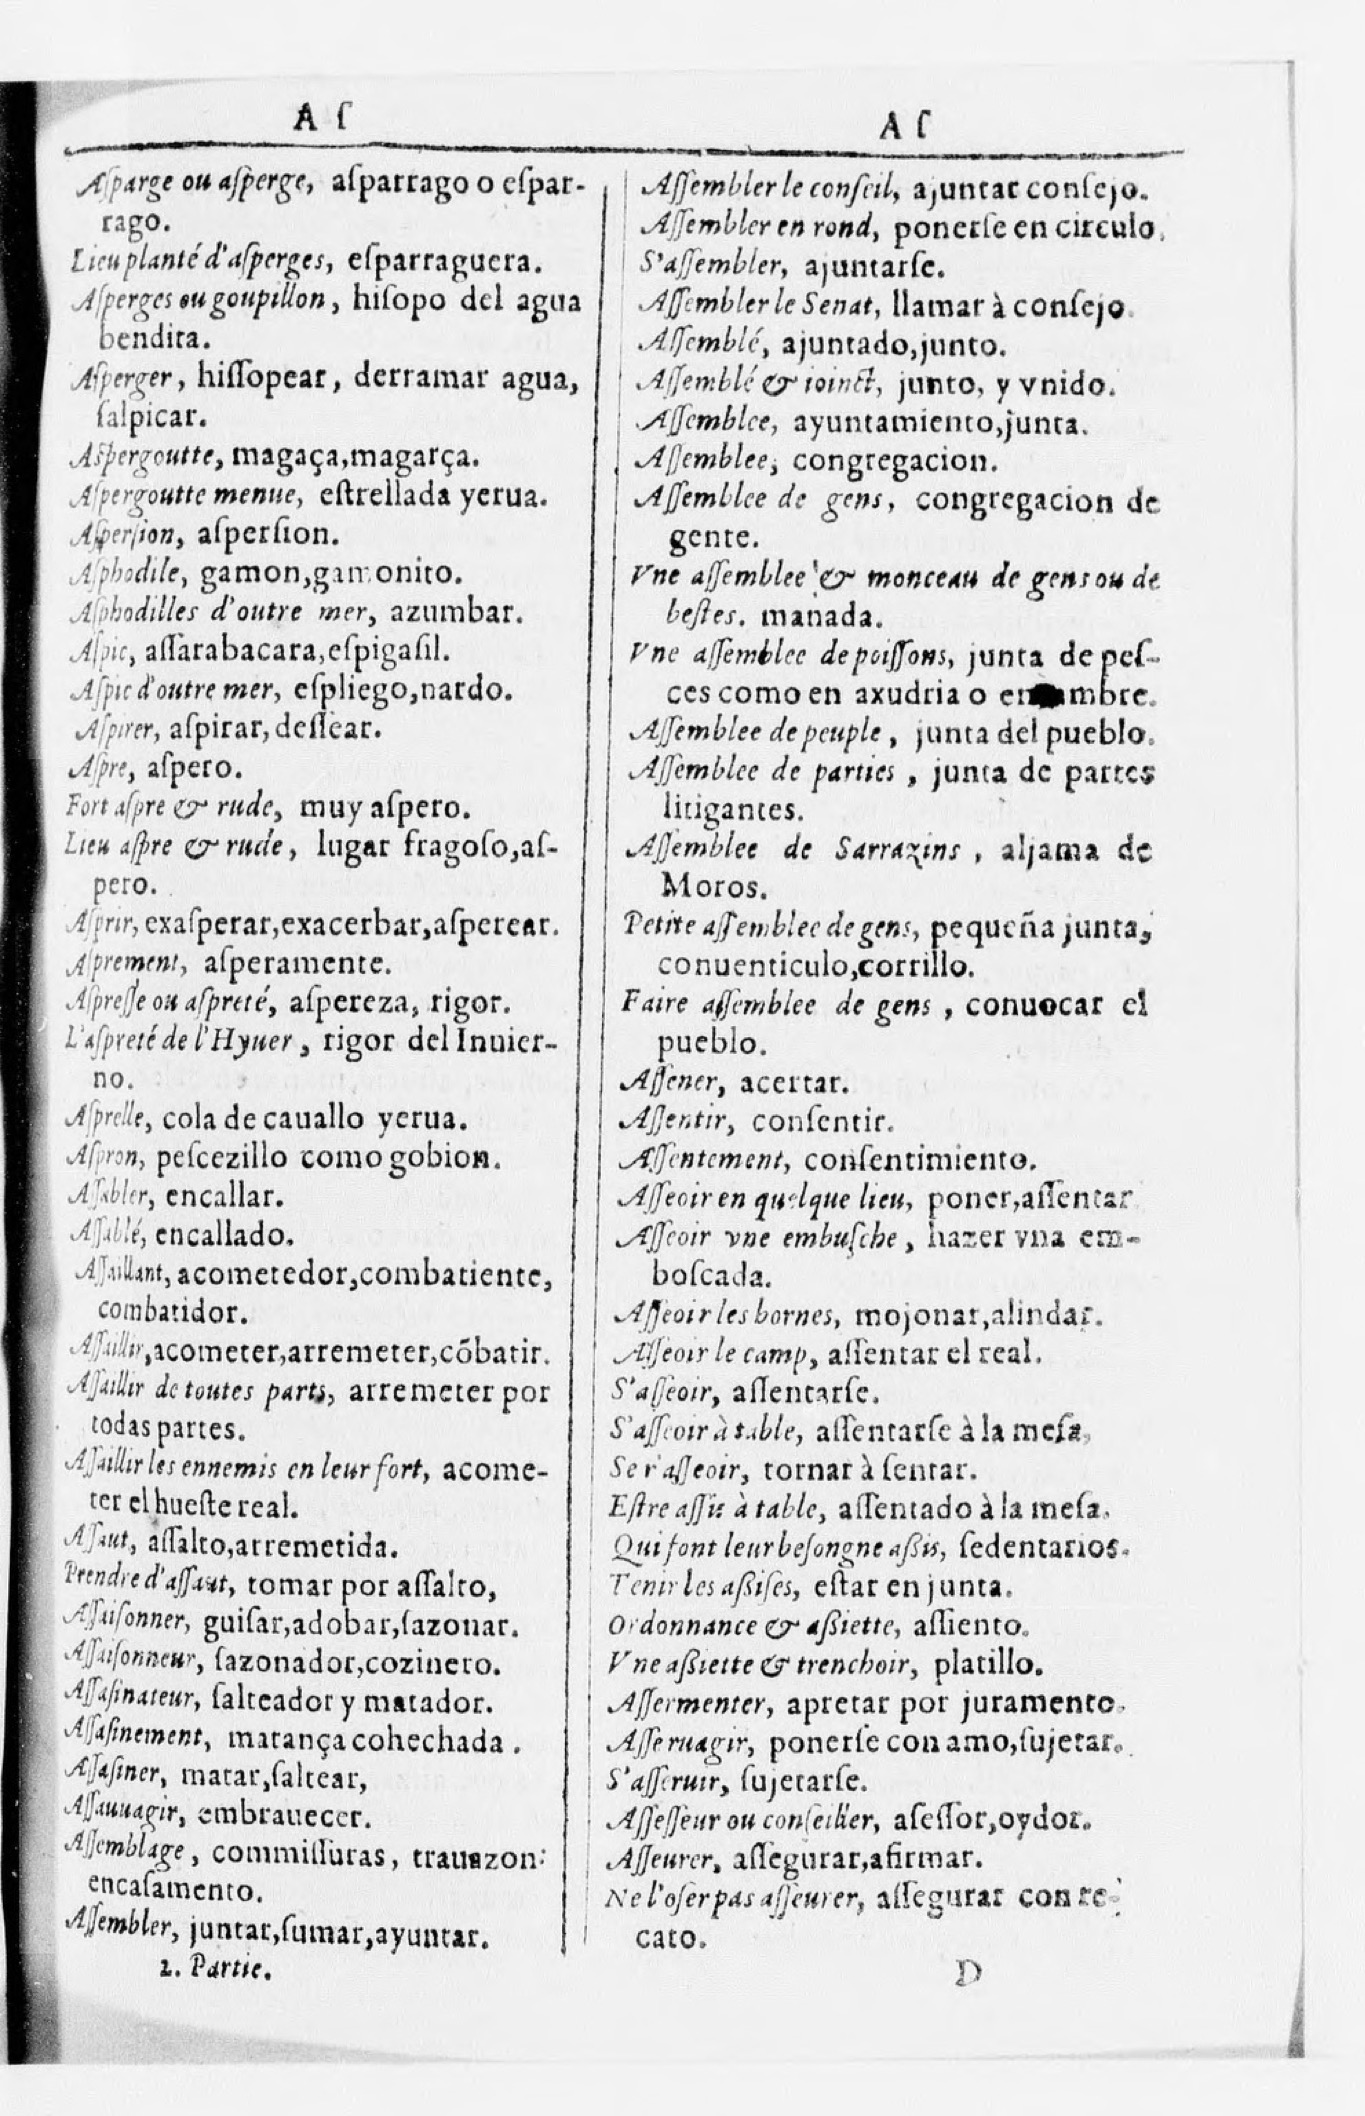 A ſ
Aſparge ou aſperge, aſparrago o eſpar-
rago.
Lieu planté d'aſperges, eſparraguera.
Aſperges ou goupillon, hiſopo del agua
bendita.
Aſperger, hiſſopear, derramar agua,
ſalpicar.
Aſpergoutte, magaça,magarça.
Aſpergoutte menue, eſtrellada yerua.
Aſperſion, aſperſion.
Aſphodile, gamon,gamonito.
Aſphodilles d'outre mer, azumbar.
Aſpic, aſſarabacara,eſpigaſil.
Aſpic d'outre mer, eſpliego,nardo.
Aſpirer, aſpirar, deſſear.
Aſpre, aſpero.
Fort aſpre & rude, muy aſpero.
Lieu aſpre & rude, lugar fragoſo,aſ-
pero.
Aſprir, exaſperar,exacerbar,aſperear.
Aſprement, aſperamente.
Aſpreſſe ou aſpreté, aſpereza, rigor.
L'aſpreté de l'Hyuer, rigor del Inuier-
no.
Aſprelle, cola de cauallo yerua.
Aſpron, peſcezillo como gobion.
Aſſabler, encallar.
Aſſablé, encallado.
Aſſaillant, acometedor,combatiente,
combatidor.
Aſſaillir,acometer,arremeter,cõbatir.
Aſſaillir de toutes parts, arremeter por
todas partes.
Aſſaillir les ennemis en leur fort, acome-
ter el hueſte real.
Aſſaut, aſſalto,arremetida.
Prendre d'aſſaut, tomar por aſſalto,
Aſſaiſonner, guiſar,adobar,ſazonar.
Aſſaiſonneur, ſazonador,cozinero.
Aſſaſinateur, ſalteador y matador.
Aſſaſinement, matança cohechada.
Aſſaſiner, matar,ſaltear,
Aſſauuagir, embrauecer.
Aſſemblage, commiſſuras, trauazon:
encaſamento.
Aſſembler, juntar,ſumar,ayuntar.
2. Partie.
A ſ
Aſſembler le conſeil, ajuntar conſejo.
Aſſembler en rond, ponerſe en circulo.
S'aſſembler, ajuntarſe.
Aſſembler le Senat, llamar à conſejo.
Aſſemblé, ajuntado,junto.
Aſſemblé & ioinct, junto, y vnido.
Aſſemblee, ayuntamiento,junta.
Aſſemblee, congregacion.
Aſſemblee de gens, congregacion de
gente.
Vne aſſemblee & monceau de gens ou de
beſtes. manada.
Vne aſſemblee de poiſſons, junta de peſ-
ces como en axudria o
Aſſemblee de peuple, junta del pueblo.
Aſſemblee de parties, junta de partes
litigantes.
Aſſemblee de Sarrazins, aljama de
Moros.
Petite aſſemblee de gens, pequeña junta,
conuenticulo,corrillo.
Faire aſſemblee de gens, conuocar el
pueblo.
Aſſener, acertar.
Aſſentir, conſentir.
Aſſentement, conſentimiento.
Aſſeoir en quelque lieu, poner,aſſentar.
Aſſeoir vne embuſche, hazer vna em-
boſcada.
Aſſeoir les bornes, mojonar,alindar.
Aſſeoir le camp, aſſentar el real.
S'aſſeoir, aſſentarſe.
S'aſſeoir à table, aſſentarſe à la meſa,
Se r'aſſeoir, tornar à ſentar.
Eſtre aſſis à table, aſſentado à la meſa.
Qui font leur beſongne aßis, ſedentarios.
Tenir les aßiſes, eſtar en junta.
Ordonnance & aßiette, aſſiento.
Vne aßiette & trenchoir, platillo.
Aſſermenter, apretar por juramento.
Aſſeruagir, ponerſe con amo,ſujetar.
S'aſſeruir, ſujetarſe.
Aſſeſſeur ou conſeiller, aſeſſor,oydor.
Aſſeurer, aſſegurar,afirmar.
Ne l'oſer pas aſſeurer, aſſegurar con re-
cato.
D